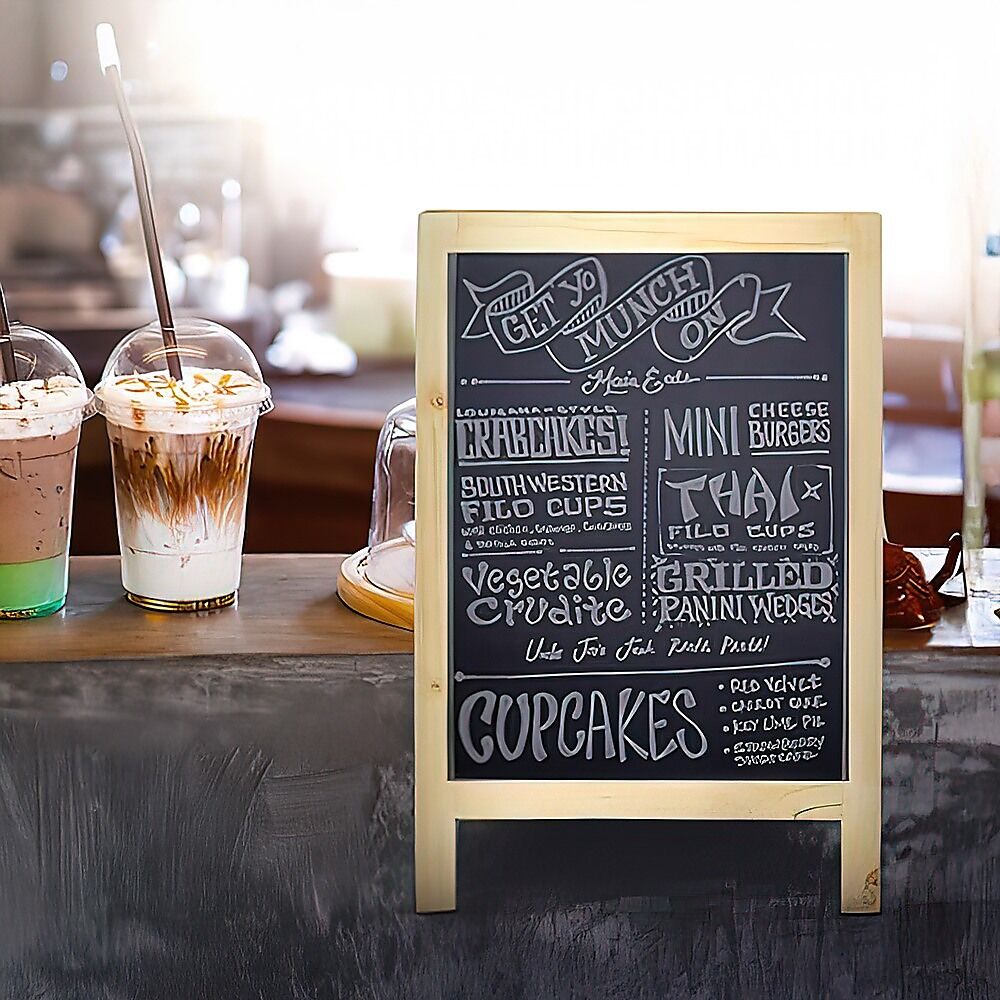 GET YO
MUNCH
ON
Main Eats
LOUISIANA-STYLE
CRABCAKES!
SOUTHWESTERN
FILO CUPS
Vegetable
Crudite
MINI CHEESE
BURGERS
THAI
FILO CUPS
GRILLED
PANINI WEDGES
Uncle Joe's Jerk Pasta!
CUPCAKES
• RED VELVET
• CARROT CAKE
• KEY LIME PIE
• STRAWBERRY
SHORTCAKE